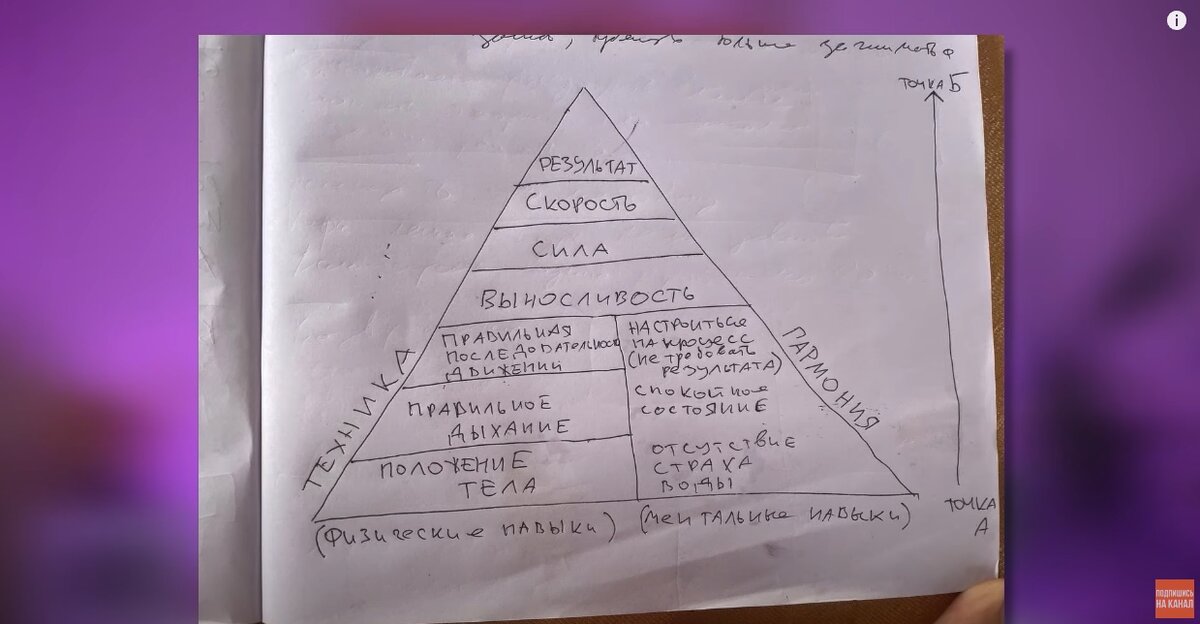 больше
ТОЧКА Б
РЕЗУЛЬТАТ
СКОРОСТЬ
СИЛА
ВЫНОСЛИВОСТЬ
ПРАВИЛЬНАЯ
ПОСЛЕДОВАТЕЛЬНОСТЬ
ДВИЖЕНИЙ
НАСТРОИТЬСЯ
НА ПРОЦЕСС
(НЕ ТРЕБОВАТЬ
РЕЗУЛЬТАТА)
ПРАВИЛЬНОЕ
ДЫХАНИЕ
СПОКОЙНОЕ
СОСТОЯНИЕ
ПОЛОЖЕНИЕ
ТЕЛА
ОТСУТСТВИЕ
СТРАХА
ВОДЫ
ТЕХНИКА
ГАРМОНИЯ
(ФИЗИЧЕСКИЕ НАВЫКИ)
(МЕНТАЛЬНЫЕ НАВЫКИ)
ТОЧКА
А
ПОДПИШИСЬ
НА КАНАЛ